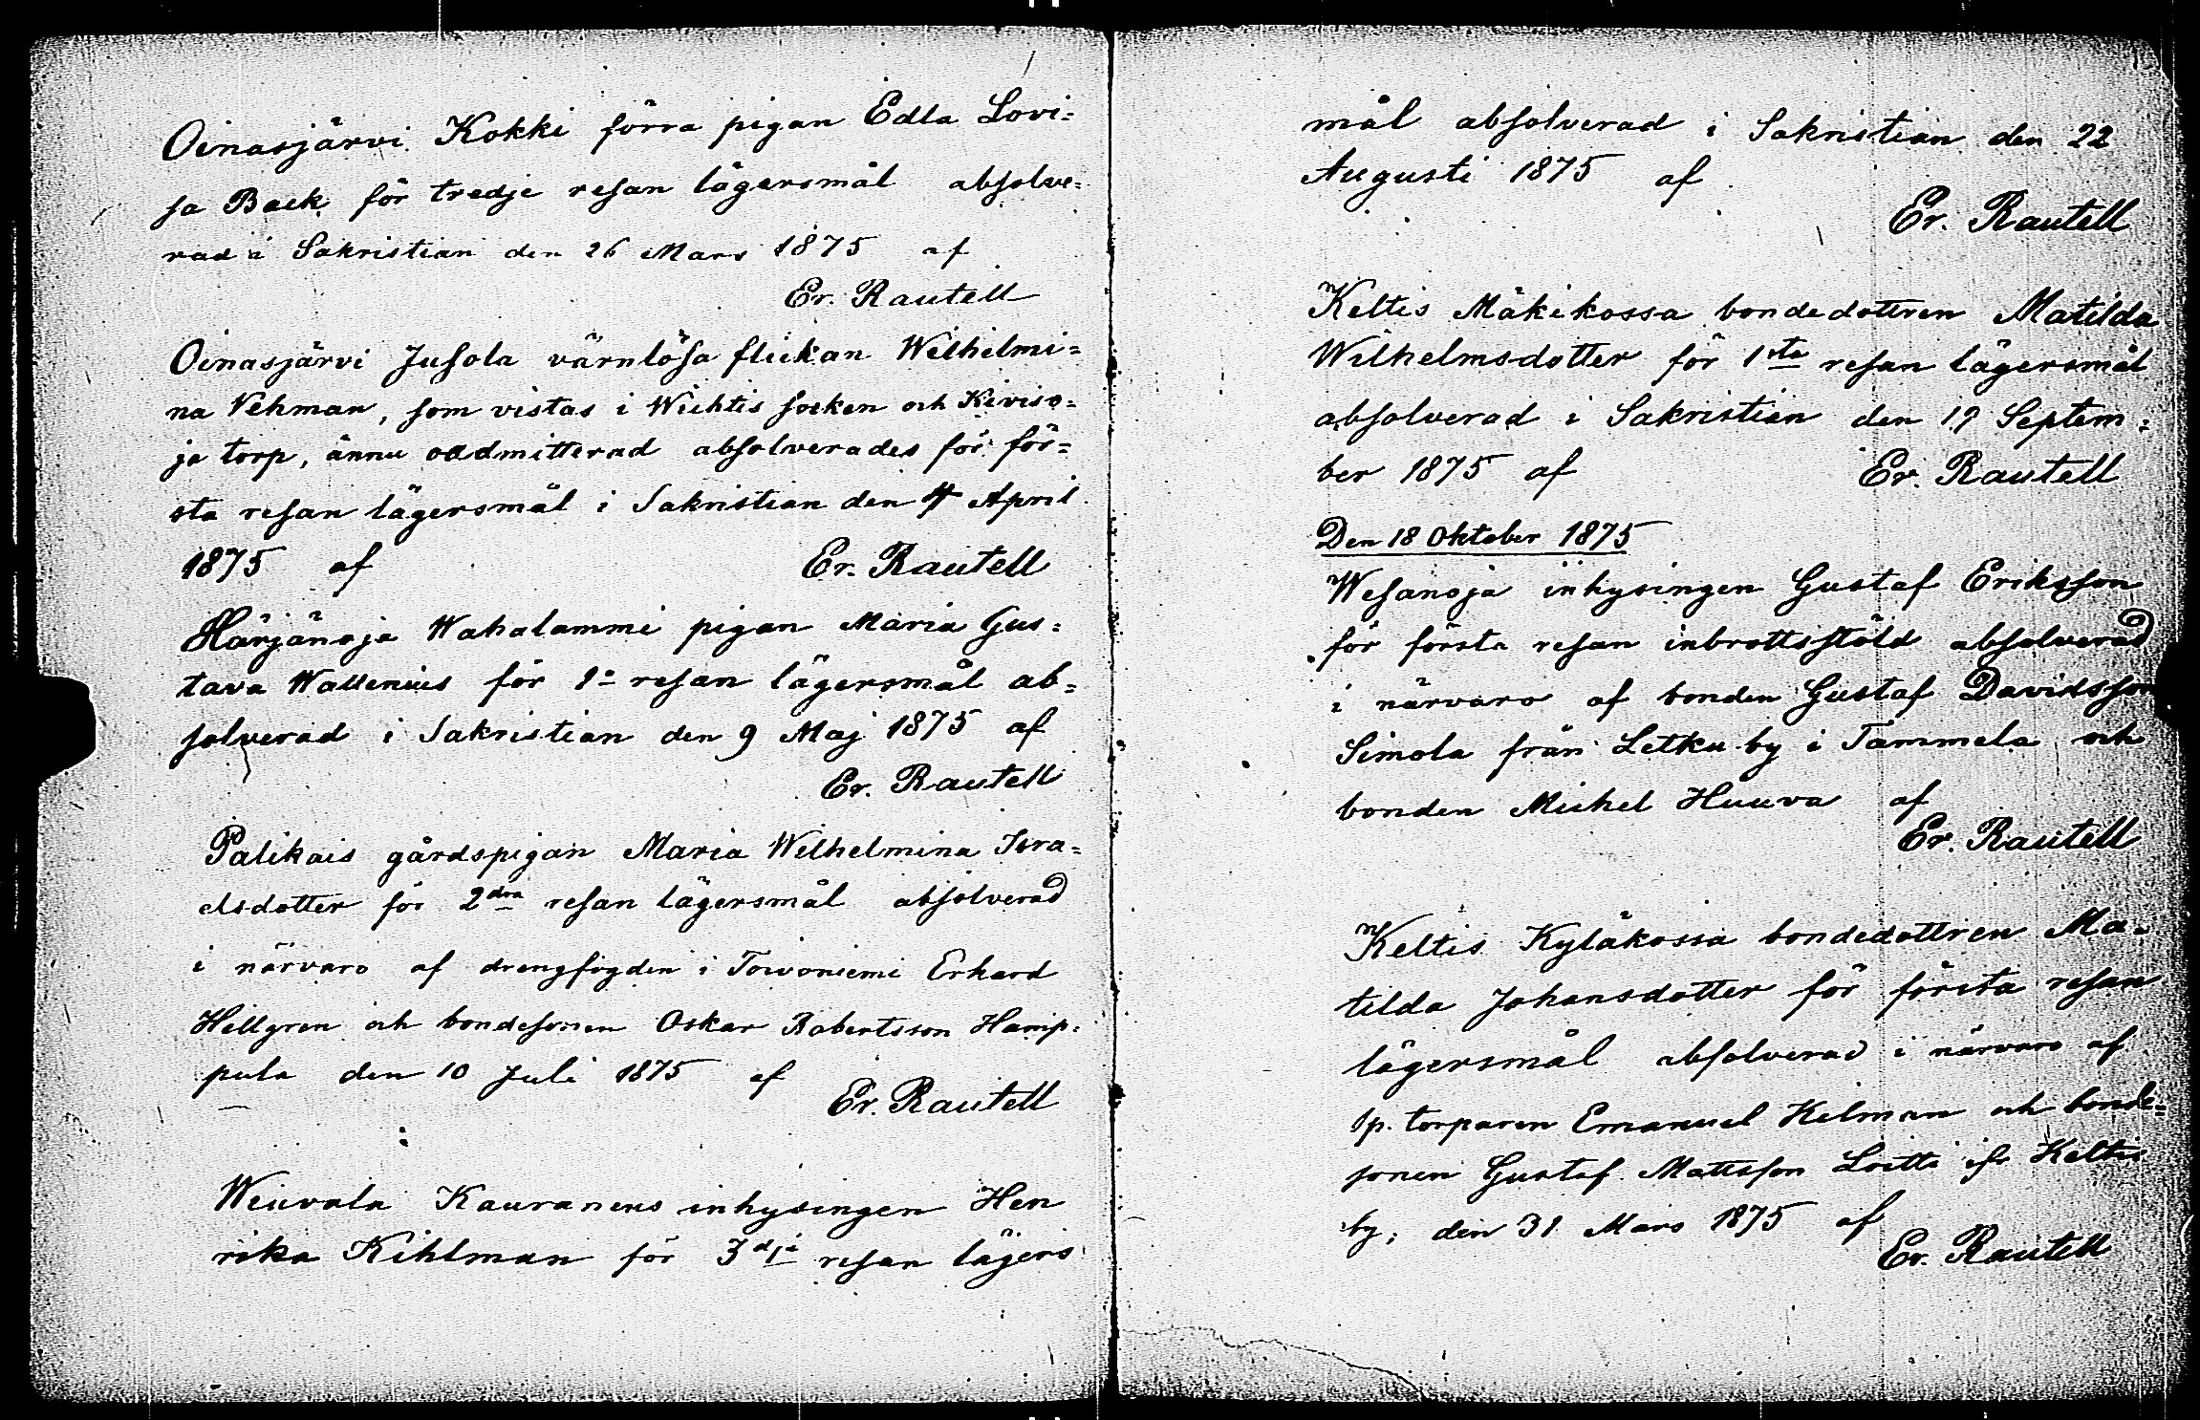 Oinasjärvi Kokki förra pigan Edla Lovi=
sa Back för tredje resan lägersmål absolve=
rad i Sakristian den 26 Mars 1875 af
Er. Rautell
Oinasjärvi Jusola värnlösa flickan Wilhelmi=
na Vehman, som vistas i Wichtis socken och Kiviso=
ja torp, ännu oadmitterad absolverades för för=
sta resan lägersmål i Sakristian den 4 April
1875 af Er. Rautell
Härjänoja Wahalammi pigan Maria Gus=
tava Wallenius för 1a resan lägersmål ab=
solverad i Sakristian den 9 Maj 1875 af
Er. Rautell
Palikais gårdspigan Maria Wilhelmina Isra=
elsdotter för 2dra resan lägersmål absolverad
i närvaro af drengfogden i Toivoniemi Erhard
Hellgren och bondesonen Oskar Robertsson Hamp=
pula den 10 Juli 1875 af
Er. Rautell
Wiuvala Kauranens inhysingen Hen
rika Kihlman för 3dje resan lägers
mål absolverad i Sakristian den 22
Augusti 1875 af
Er. Rautell
Keltis Mäkikossa bondedottren Matilda
Wilhelmsdotter för 1sta resan lägersmål
absolverad i Sakristian den 19 Septem=
ber 1875 af Er. Rautell
Den 18 Oktober 1875
Wesanoja inhysingen Gustaf Eriksson
för första resan inbrottsstöld absolverad
i närvaro af bonden Gustaf Davidsson
Simola från Letku by i Tammela och
bonden Michel Huuva af
Er. Rautell
Keltis Kyläkossa bondedottren Ma=
tilda Johansdotter för första resan
lägersmål absolverad i närvaro af
sp. torparen Emanuel Kilman och bonde=
sonen Gustaf Mattsson Loitti ifr Keltis
by, den 31 Mars 1875 af
Er. Rautell